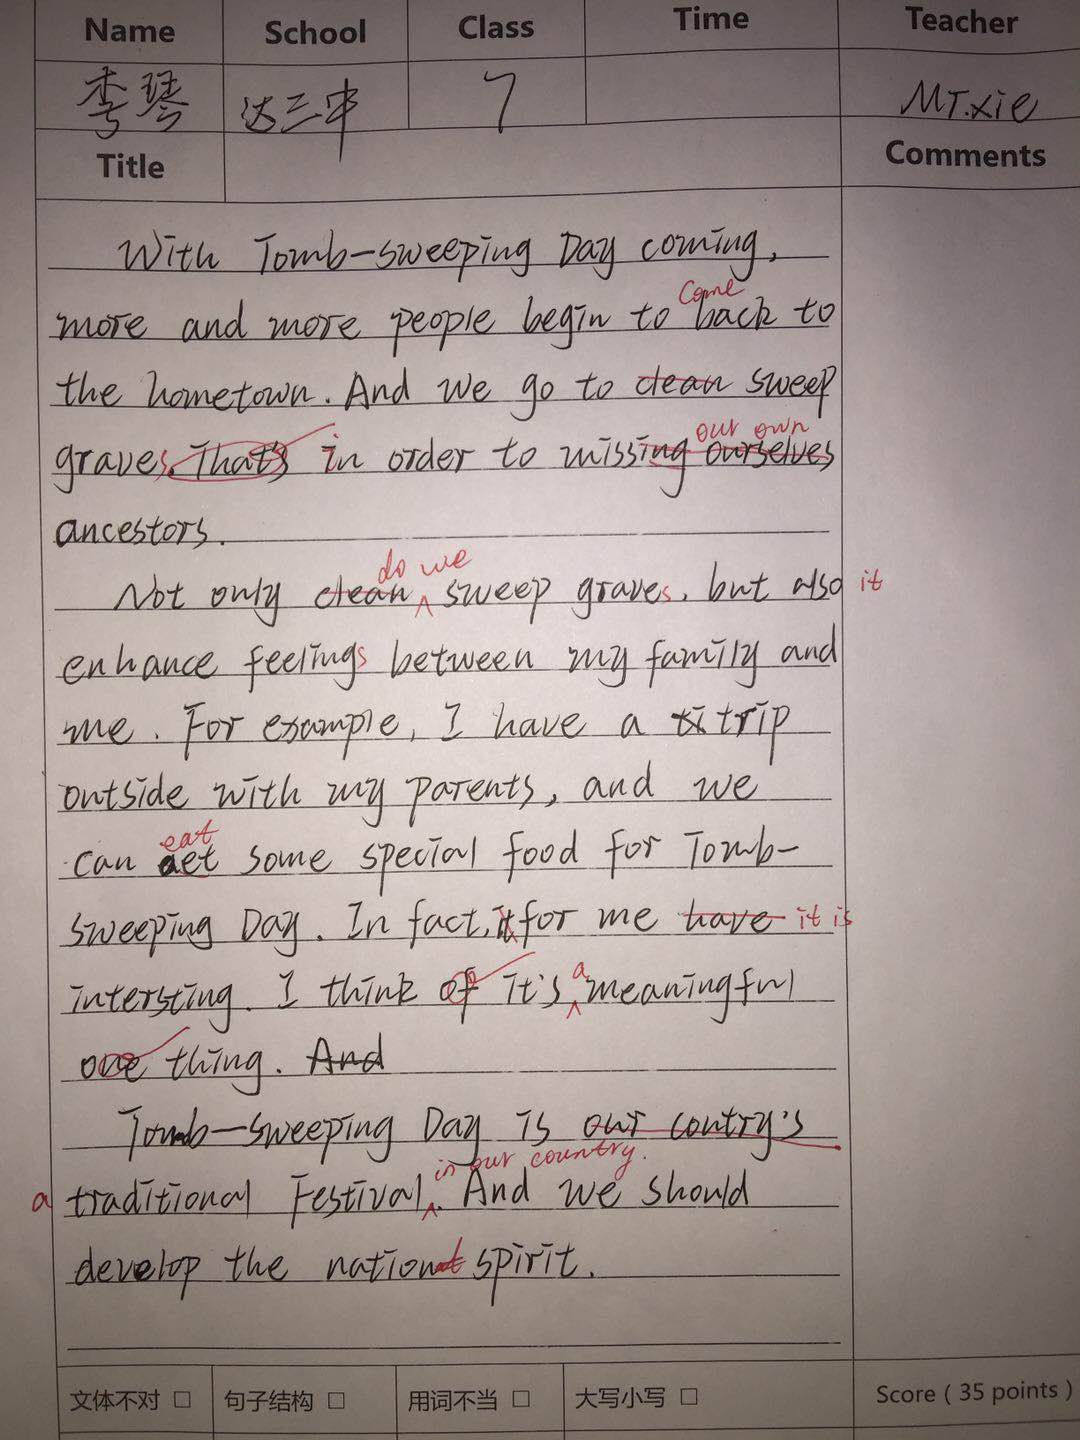 Name School Class Time Teacher
李琴 达三中 7 Mr.xie
Title Comments
With Tomb-sweeping Day coming,
come
more and more people begin to back to
the hometown. And we go to clean sweep
our own
graves. That's in order to missing ourselves
ancestors.
do we
Not only clean sweep graves, but also it
enhance feelings between my family and
me. For example, I have a ti trip
outside with my parents, and we
eat
can aet some special food for Tomb-
sweeping Day. In fact, it for me have it is
intersting. I think of it's a meaningful
one thing. And
Tomb-sweeping Day is our contry's
in our country.
a traditional Festival. And we should
develop the national spirit.
文体不对 □ 句子结构 □ 用词不当 □ 大写小写 □ Score ( 35 points )